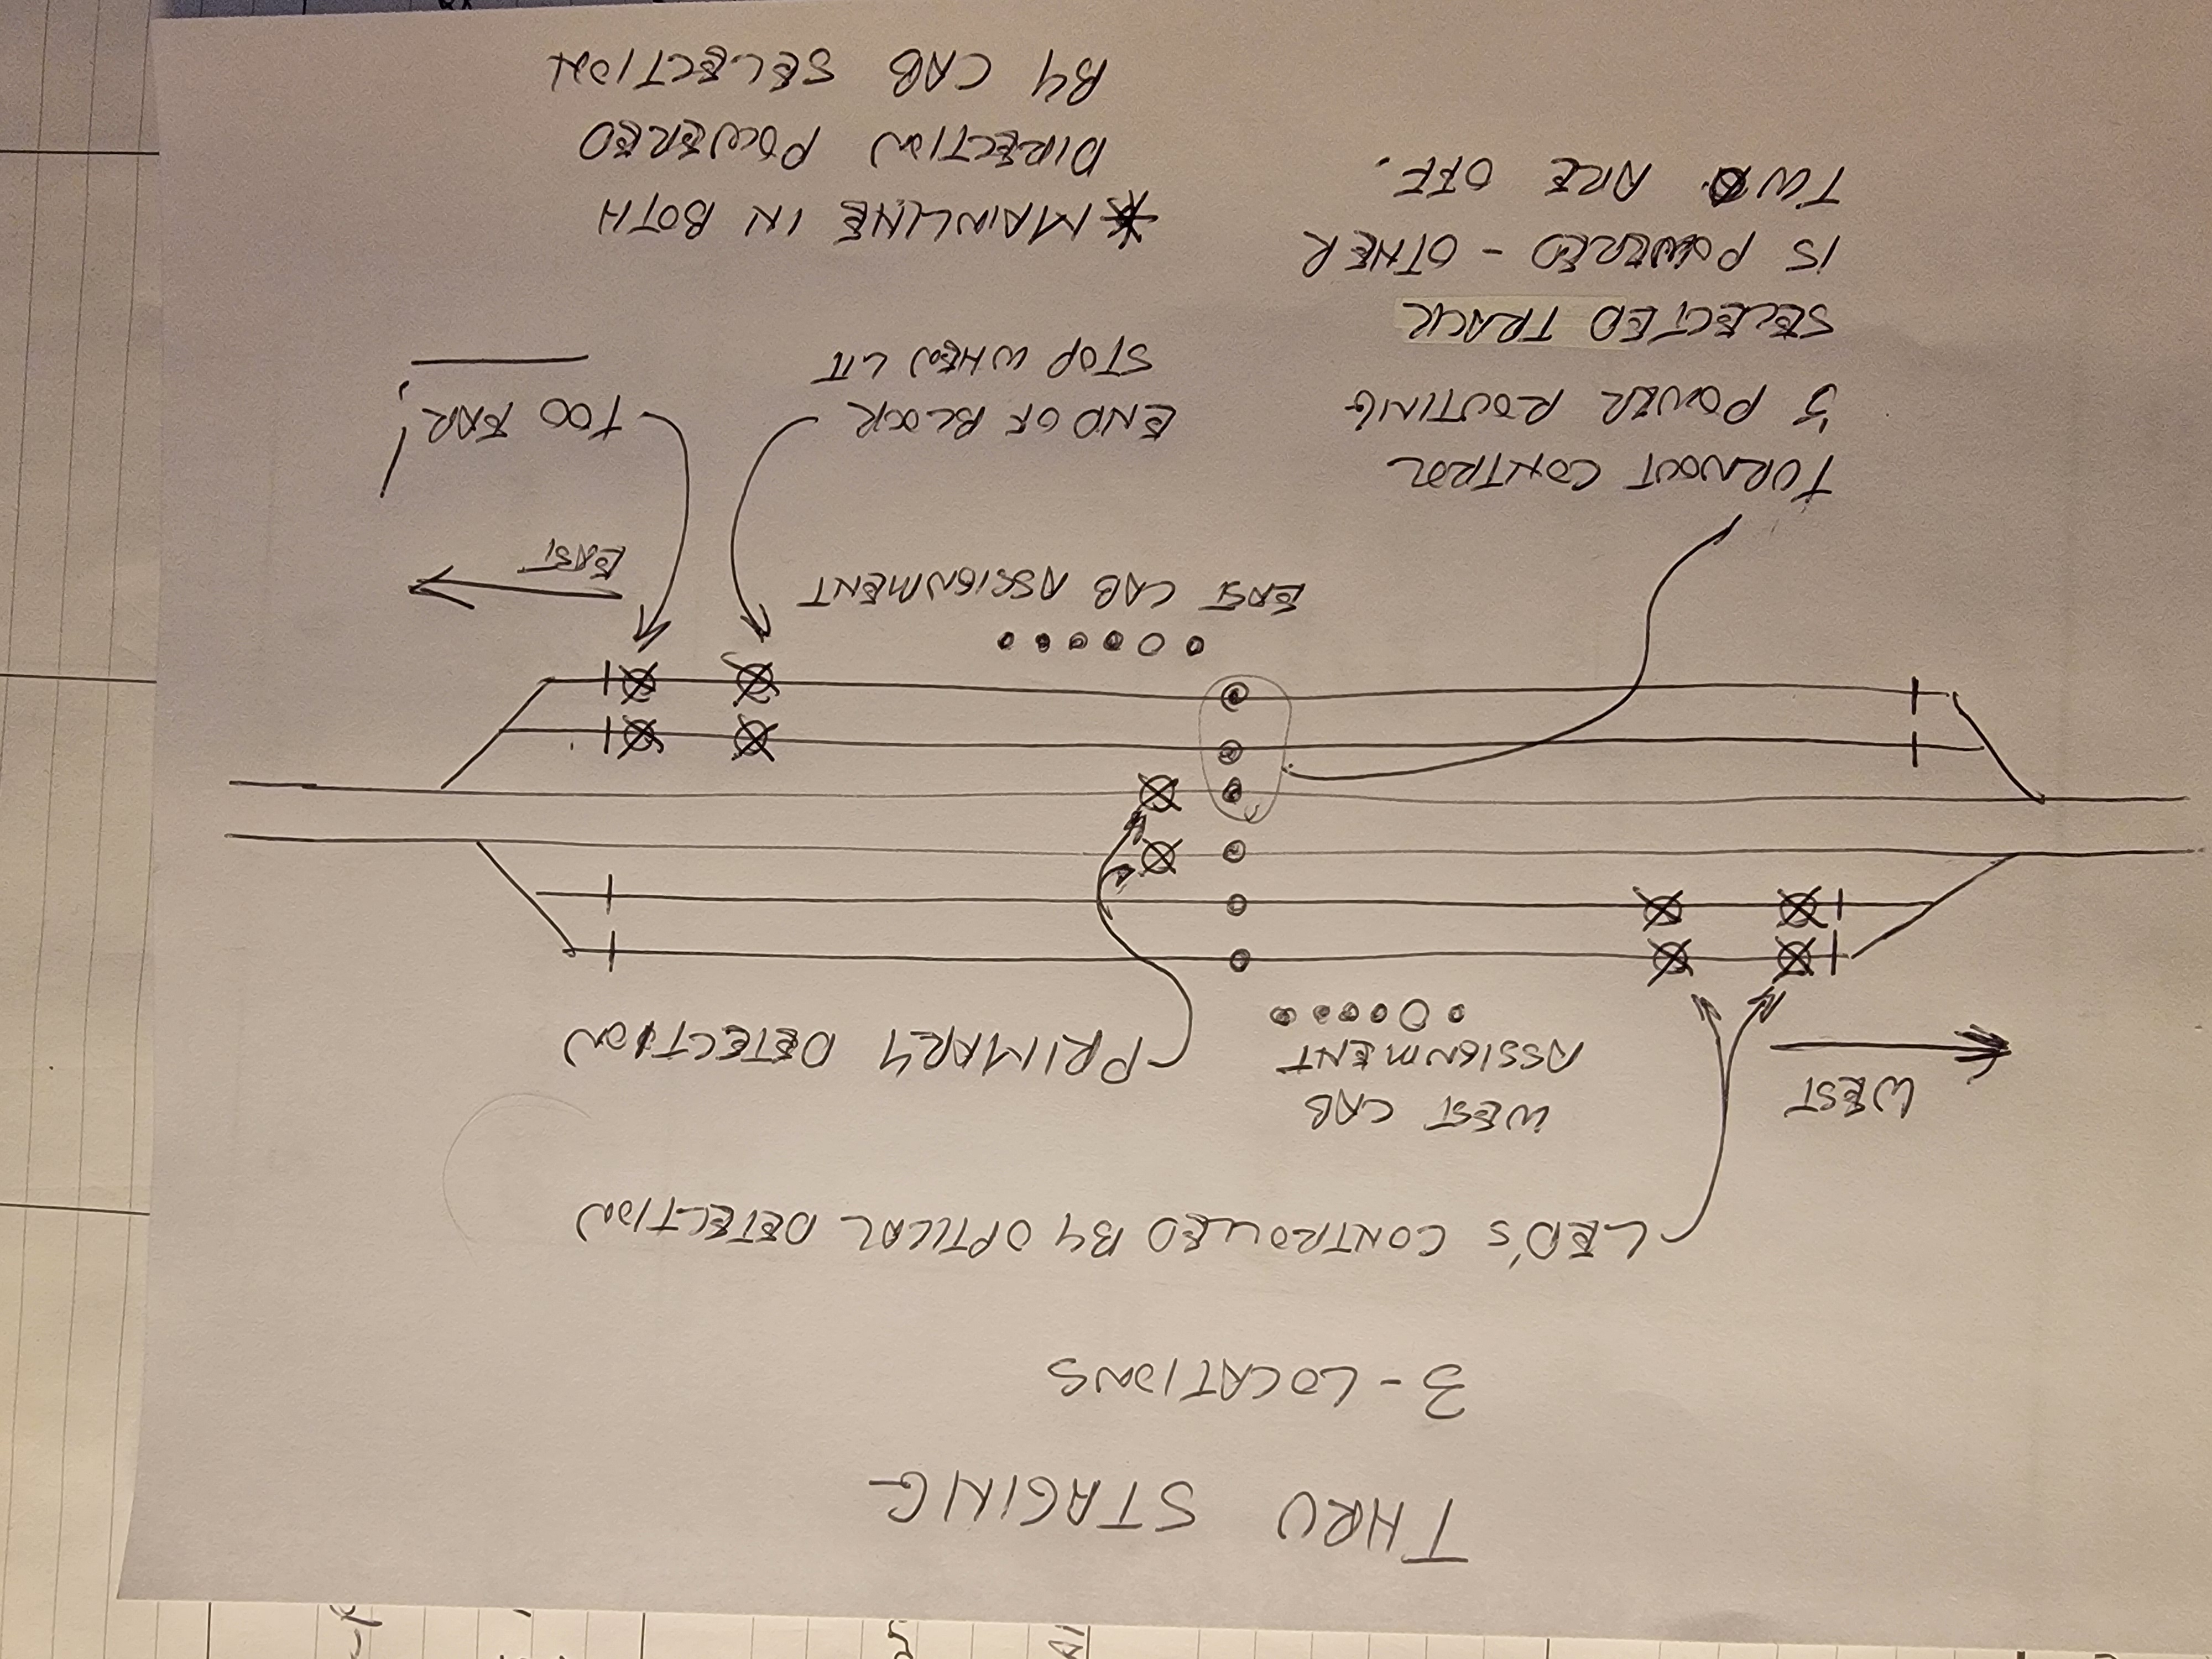 THRU STAGING
3-LOCATIONS
LED'S CONTROLLED BY OPTICAL DETECTION
WEST
WEST CAB
ASSIGNMENT
PRIMARY DETECTION
EAST CAB ASSIGNMENT
EAST
TURNOUT CONTROL
& POWER ROUTING
SELECTED TRACK
IS POWERED - OTHER
TWO ARE OFF.
END OF BLOCK
STOP WHEN LIT
TOO FAR!
*MAINLINE IN BOTH
DIRECTION POWERED
BY CAB SELECTION